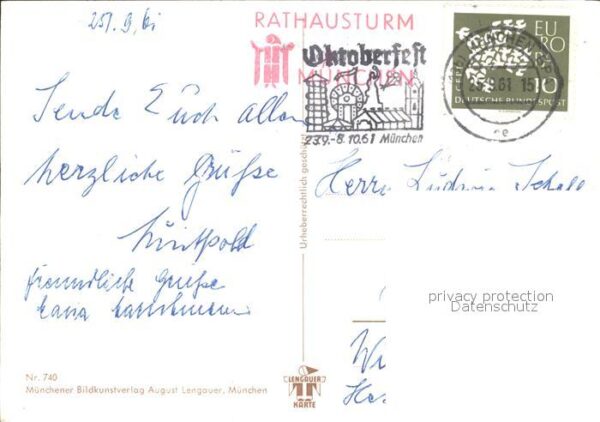 25. 9. 61
Sende Euch allen
herzliche Grüße
freundliche Grüße
Nr. 740
Münchener Bildkunstverlag August Lengauer, München
Urheberrechtlich geschützt
LENGAUER
KARTE
RATHAUSTURM
MÜNCHEN
Oktoberfest
23.9.-8.10.61 München
MÜNCHEN
.61 15
EUROPA
CEPT
10
DEUTSCHE BUNDESPOST
Herrn Ludwig
privacy protection
Datenschutz